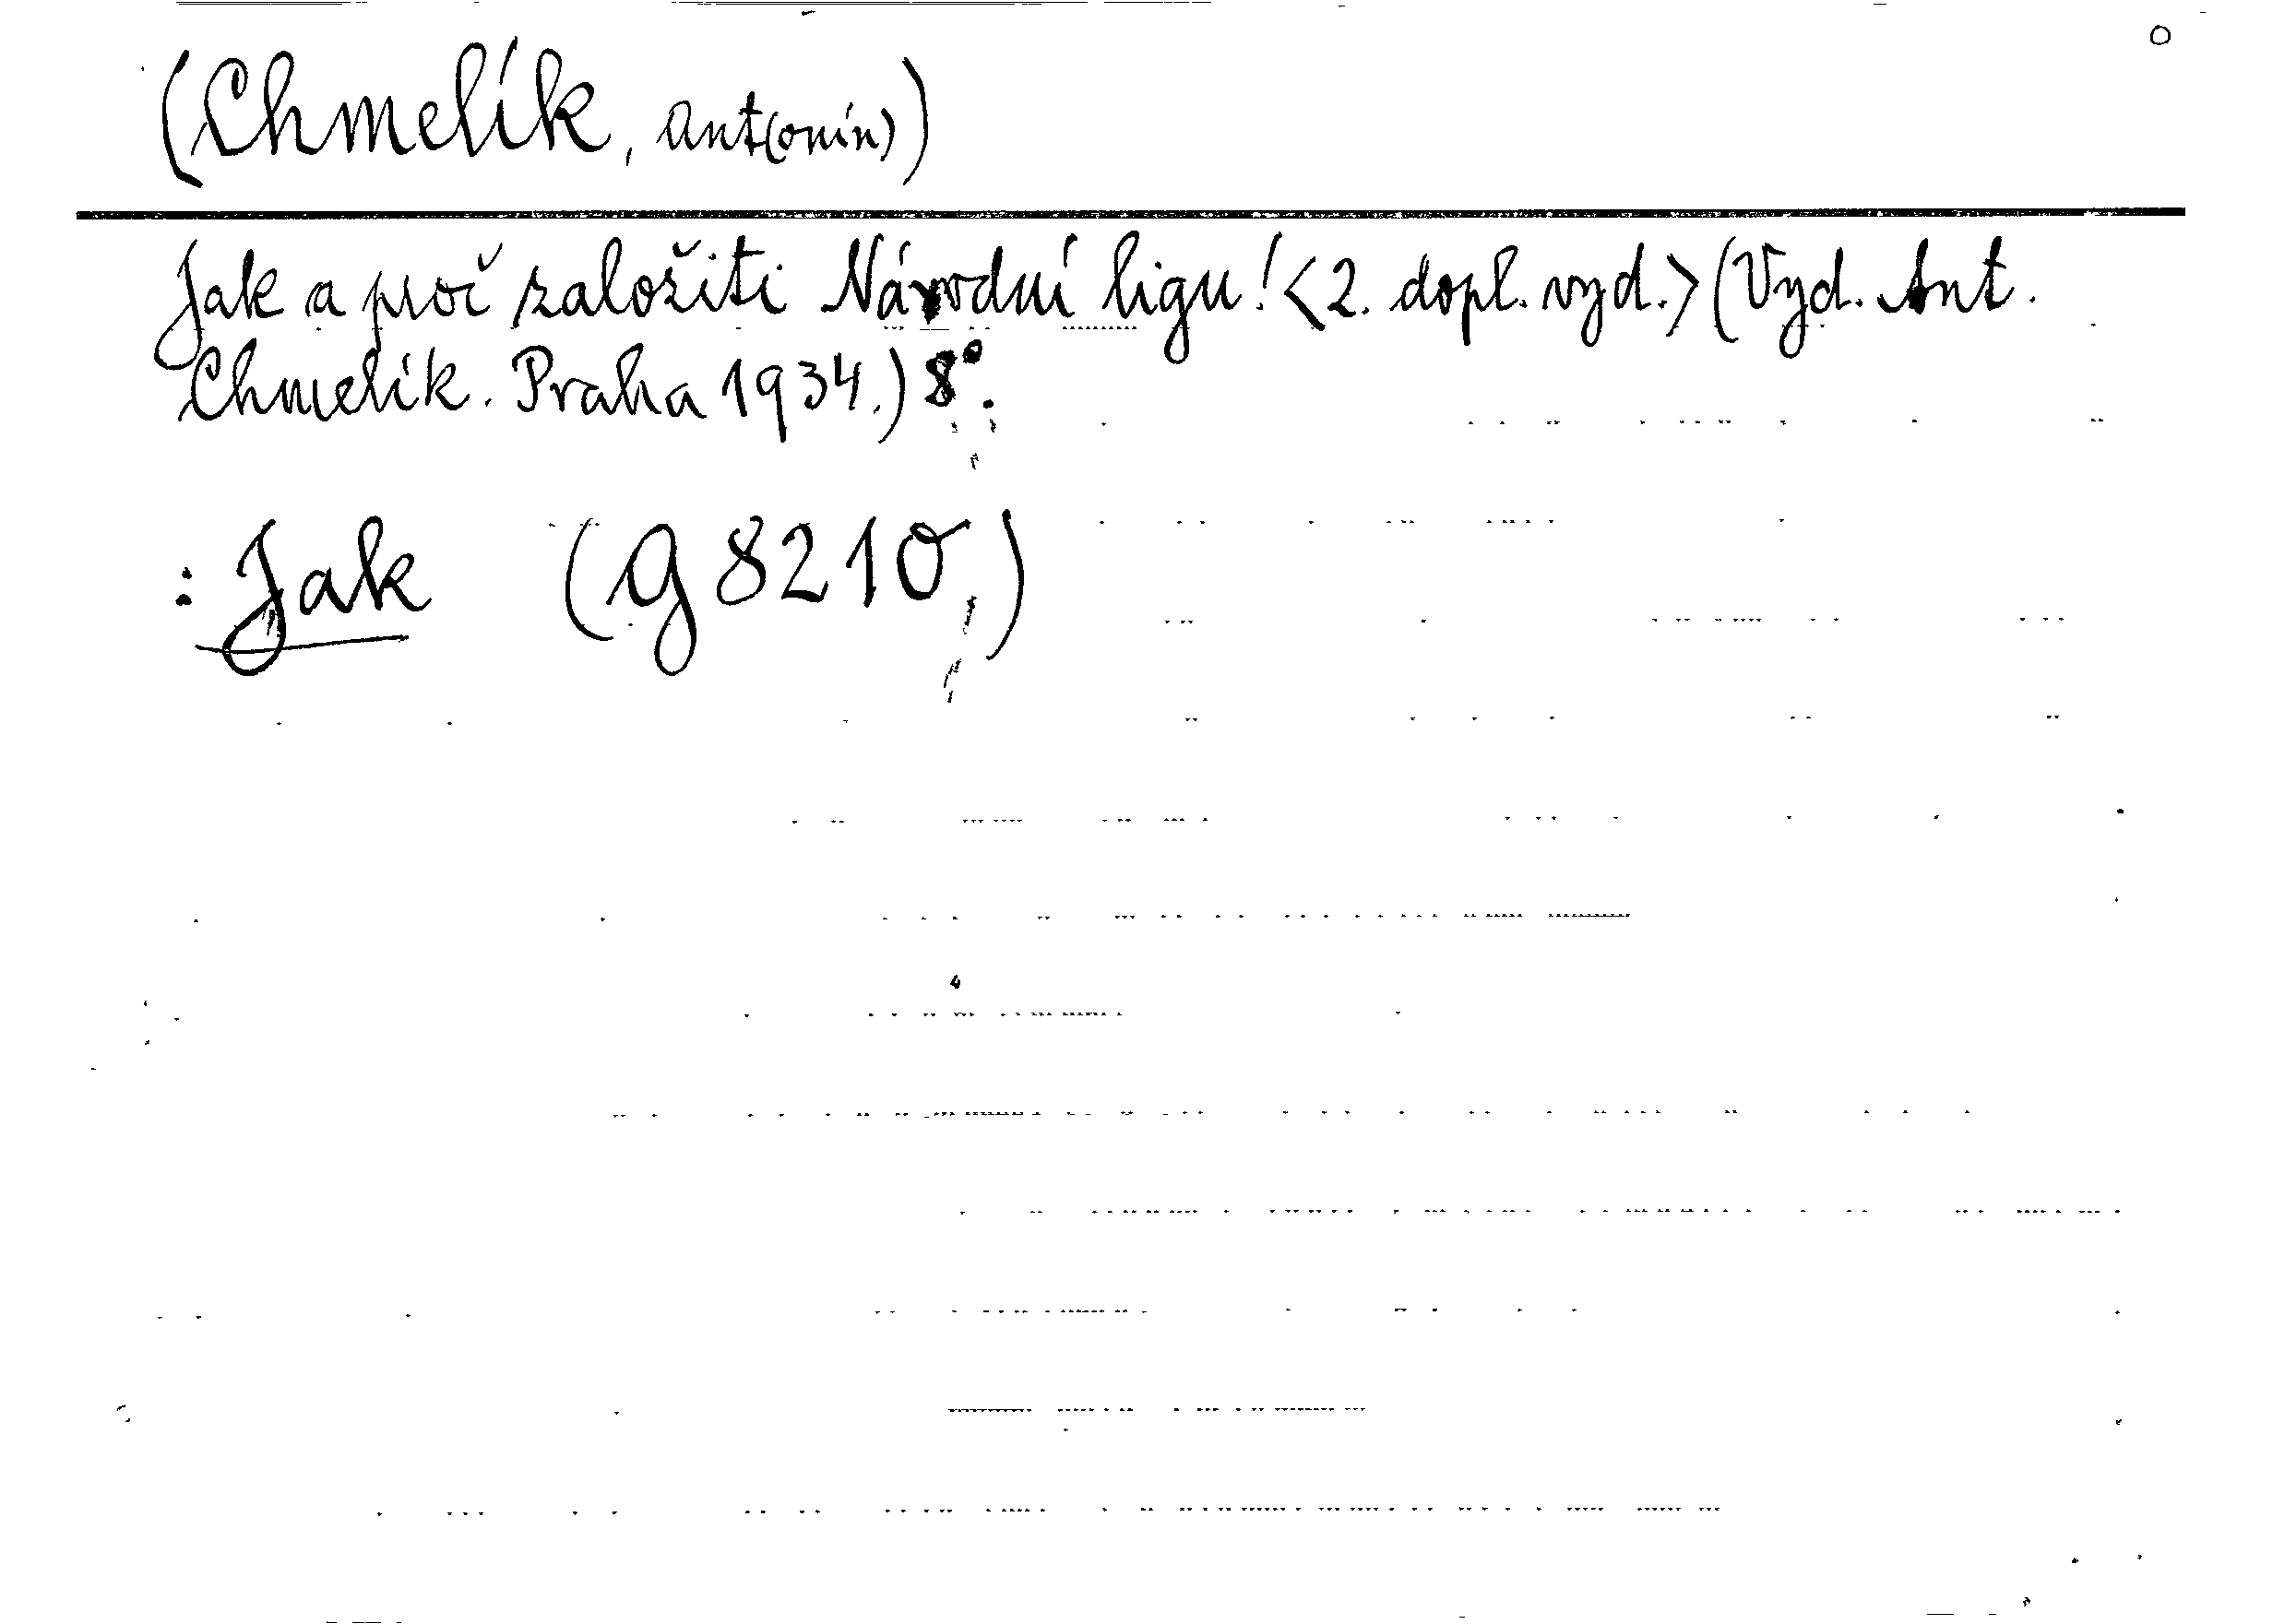 (Chmelík, Ant(onín))
Jak a proč založiti Národní ligu! <2. dopl. vyd.> (Vyd. Ant.
Chmelík. Praha 1934.) 8°.
: Jak (g 8210)